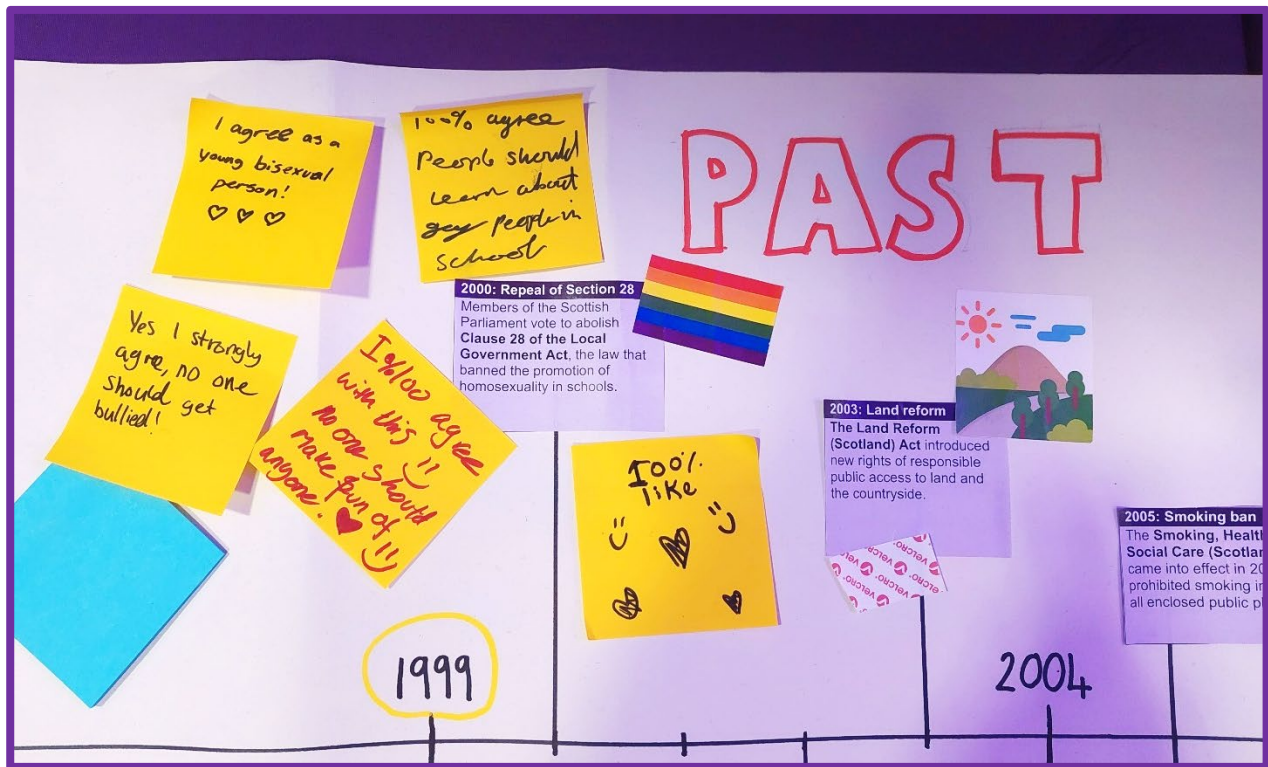 I agree as a
young bisexual
person!
100% agree
People should
learn about
gay people in
school
PAST
Yes I strongly
agree, no one
should get
bullied!
I%100 agree
with this
no one should
make fun of
anyone.
2000: Repeal of Section 28
Members of the Scottish
Parliament vote to abolish
Clause 28 of the Local
Government Act, the law that
banned the promotion of
homosexuality in schools.
100%
like
2003: Land reform
The Land Reform
(Scotland) Act introduced
new rights of responsible
public access to land and
the countryside.
VELCRO VELCRO
VELCRO VELCRO
VELCRO VELCRO
2005: Smoking ban
The Smoking, Health
Social Care (Scotlan
came into effect in 20
prohibited smoking in
all enclosed public pl
1999
2004